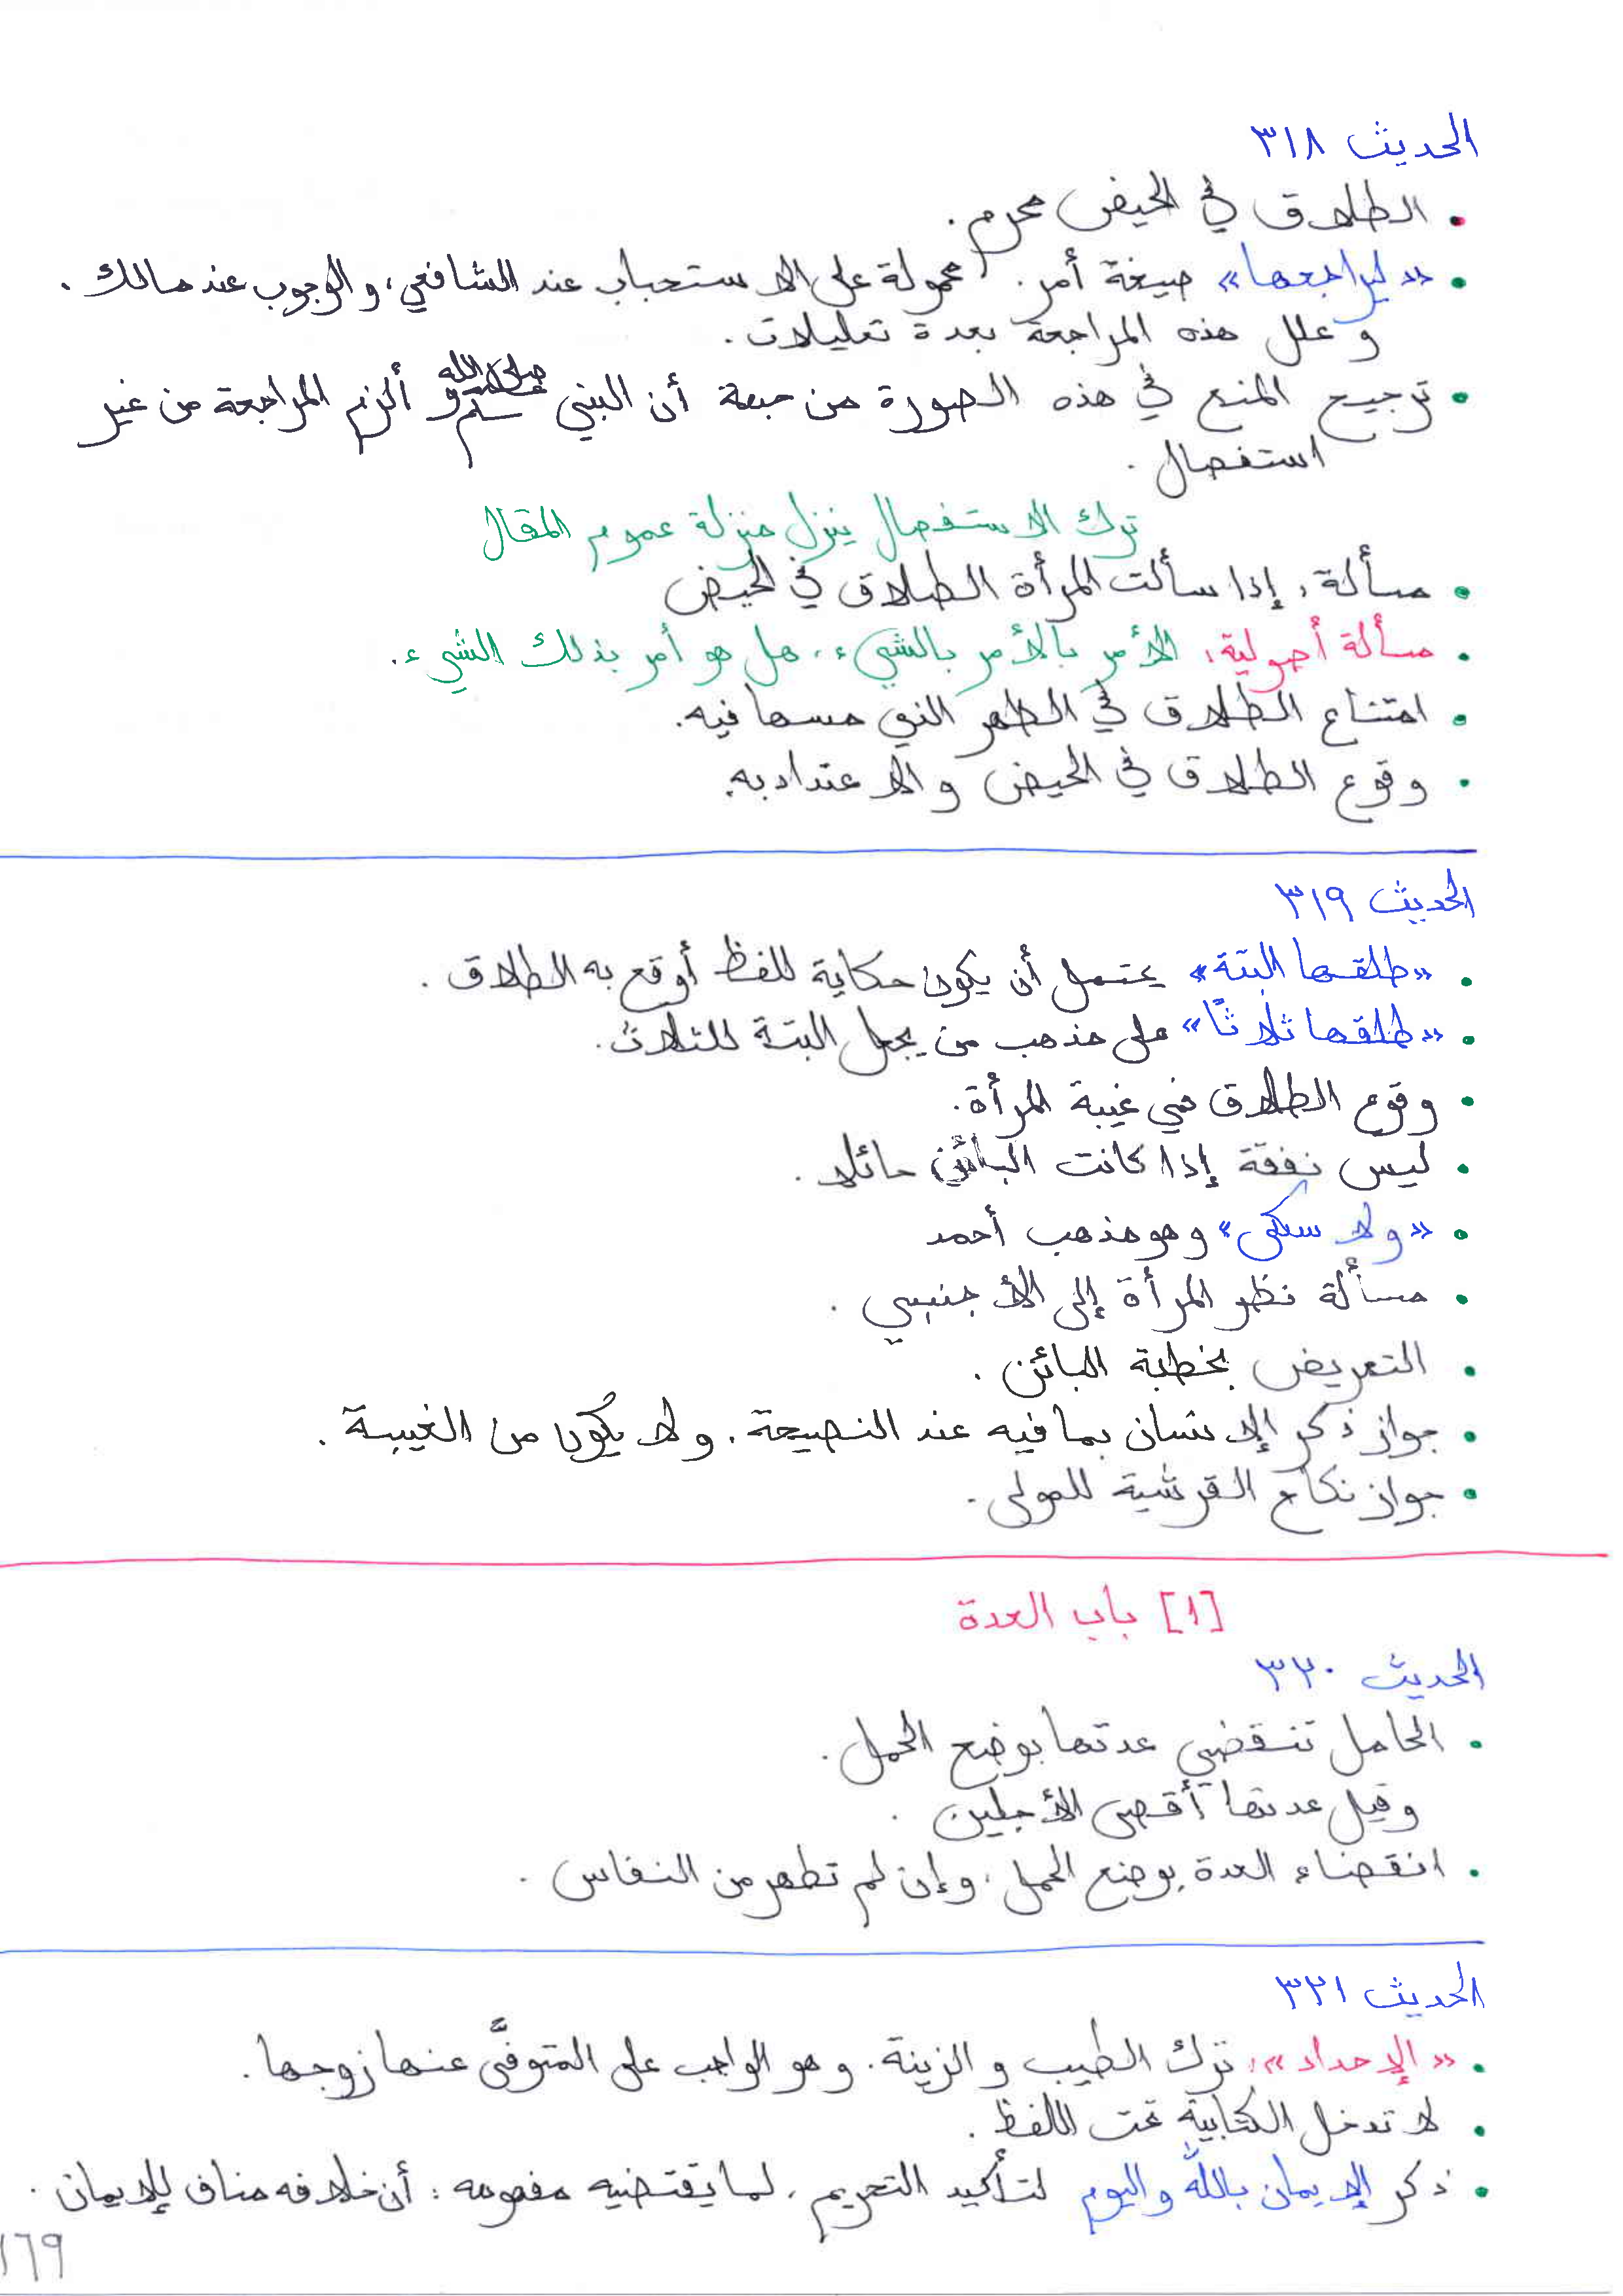 الحديث ٣١٨
• الطلاق في الحيض محرم.
• «ليراجعها» صيغة أمر. محمولة على الاستحباب عند الشافعي، والوجوب عند مالك.
وعلل هذه المراجعة بعدة تعليلات.
• ترجيح المنع في هذه الصورة من جهة أن النبي صلى الله عليه وسلم ألزم المراجعة من غير
استفصال.
ترك الاستفصال ينزل منزلة عموم المقال
• مسألة: إذا سألت المرأة الطلاق في الحيض
• مسألة أصولية: الأمر بالأمر بالشيء، هل هو أمر بذلك الشيء.
• امتناع الطلاق في الطهر الذي مسها فيه.
• وقوع الطلاق في الحيض والاعتداد به.
الحديث ٣١٩
• «طلقها البتة» يحتمل أن يكون حكاية للفظ أوقع به الطلاق.
• «طلقها ثلاثًا» على مذهب من يجعل البتة للثلاث.
• وقوع الطلاق في غيبة المرأة.
• ليس نفقة إذا كانت البائن حائلا.
• «ولا سكنى» وهو مذهب أحمد
• مسألة نظر المرأة إلى الأجنبي.
• التعريض بخطبة البائن.
• جواز ذكر الإنسان بما فيه عند النصيحة. ولا يكون من الغيبة.
• جواز نكاح القرشية للمولى.
[١] باب العدة
الحديث ٣٢٠
• الحامل تنقضي عدتها بوضع الحمل.
وقيل عدتها أقصى الأجلين.
• انقضاء العدة بوضع الحمل، وإن لم تطهر من النفاس.
الحديث ٣٢١
• «الإحداد»: ترك الطيب والزينة. وهو الواجب على المتوفَّى عنها زوجها.
• لا تدخل الكتابية تحت اللفظ.
• ذكر الإيمان بالله واليوم لتأكيد التحريم. لما يقتضيه مفهومه: أن خلافه مناف للإيمان.
١٦٩